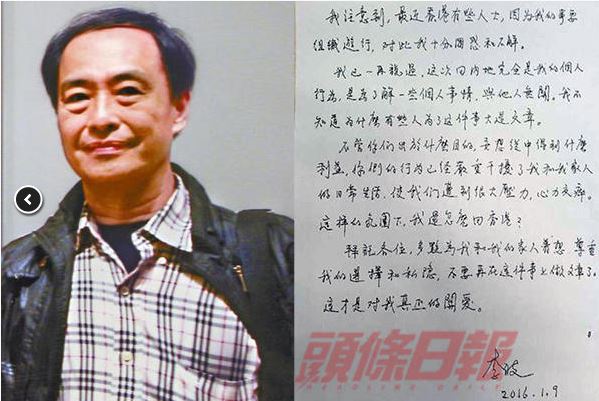 我注意到，最近香港有些人士，因为我的事要
组织遊行，对此我十分困惑和不解。
我已一再说过，这次回内地完全是我的個人
行为，是为了解一些個人事情，與他人無関。我不
知道为什麽有些人为了这件事大造文章。
不管你們出於什麽目的，妄想從中得到什麽
利益，你們的行为已经严重干擾了我和我家人
的日常生活，使我們遭到很大壓力，心力交瘁。
这样的氛围下，我還怎麽回香港？
拜託各位，多點為我和我的家人着想，尊重
我的選擇和私隱，不要再在这件事上做文章了。
这才是对我真正的関愛。
李波
2016.1.9
頭條日報
HEADLINE DAILY